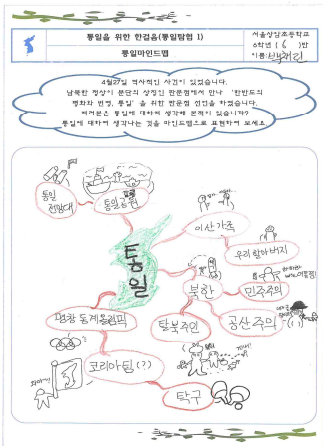 통일을 위한 한걸음(통일탐험 1)
통일마인드맵
서울상남초등학교
6학년 ( 6 )반
이름:
4월27일 역사적인 사건이 있었습니다.
남북한 정상이 분단의 상징인 판문점에서 만나 '한반도의
평화와 번영, 통일' 을 위한 판문점 선언을 하였습니다.
여러분은 통일에 대하여 생각해 본적이 있습니까?
통일에 대하여 생각나는 것을 마인드맵으로 표현하여 보세요
통일
전망대
통일공원
이산가족
우리 할아버지
통일
북한
민주주의
공산주의
탈북주민
평창 동계올림픽
코리아팀(?)
탁구